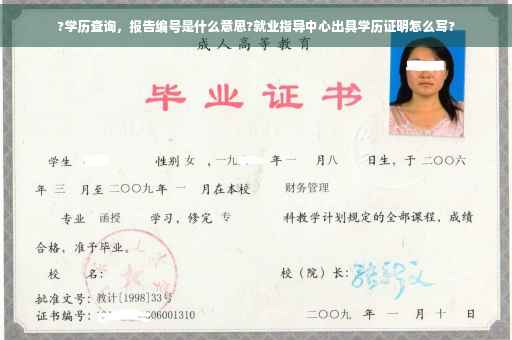 ?学历查询，报告编号是什么意思?就业指导中心出具学历证明怎么写?
成人高等教育
毕业证书
学生 性别 女 ，一九 年一 月八 日生，于二〇〇六
年 三 月至二〇〇九年 一 月在本校 财务管理
专业 函授 学习，修完 专 科教学计划规定的全部课程，成绩
合格，准予毕业。
校 名： 校（院）长：
批准文号：教计[1998]33号
证书编号： 06001310 二〇〇九 年 一 月 十 日